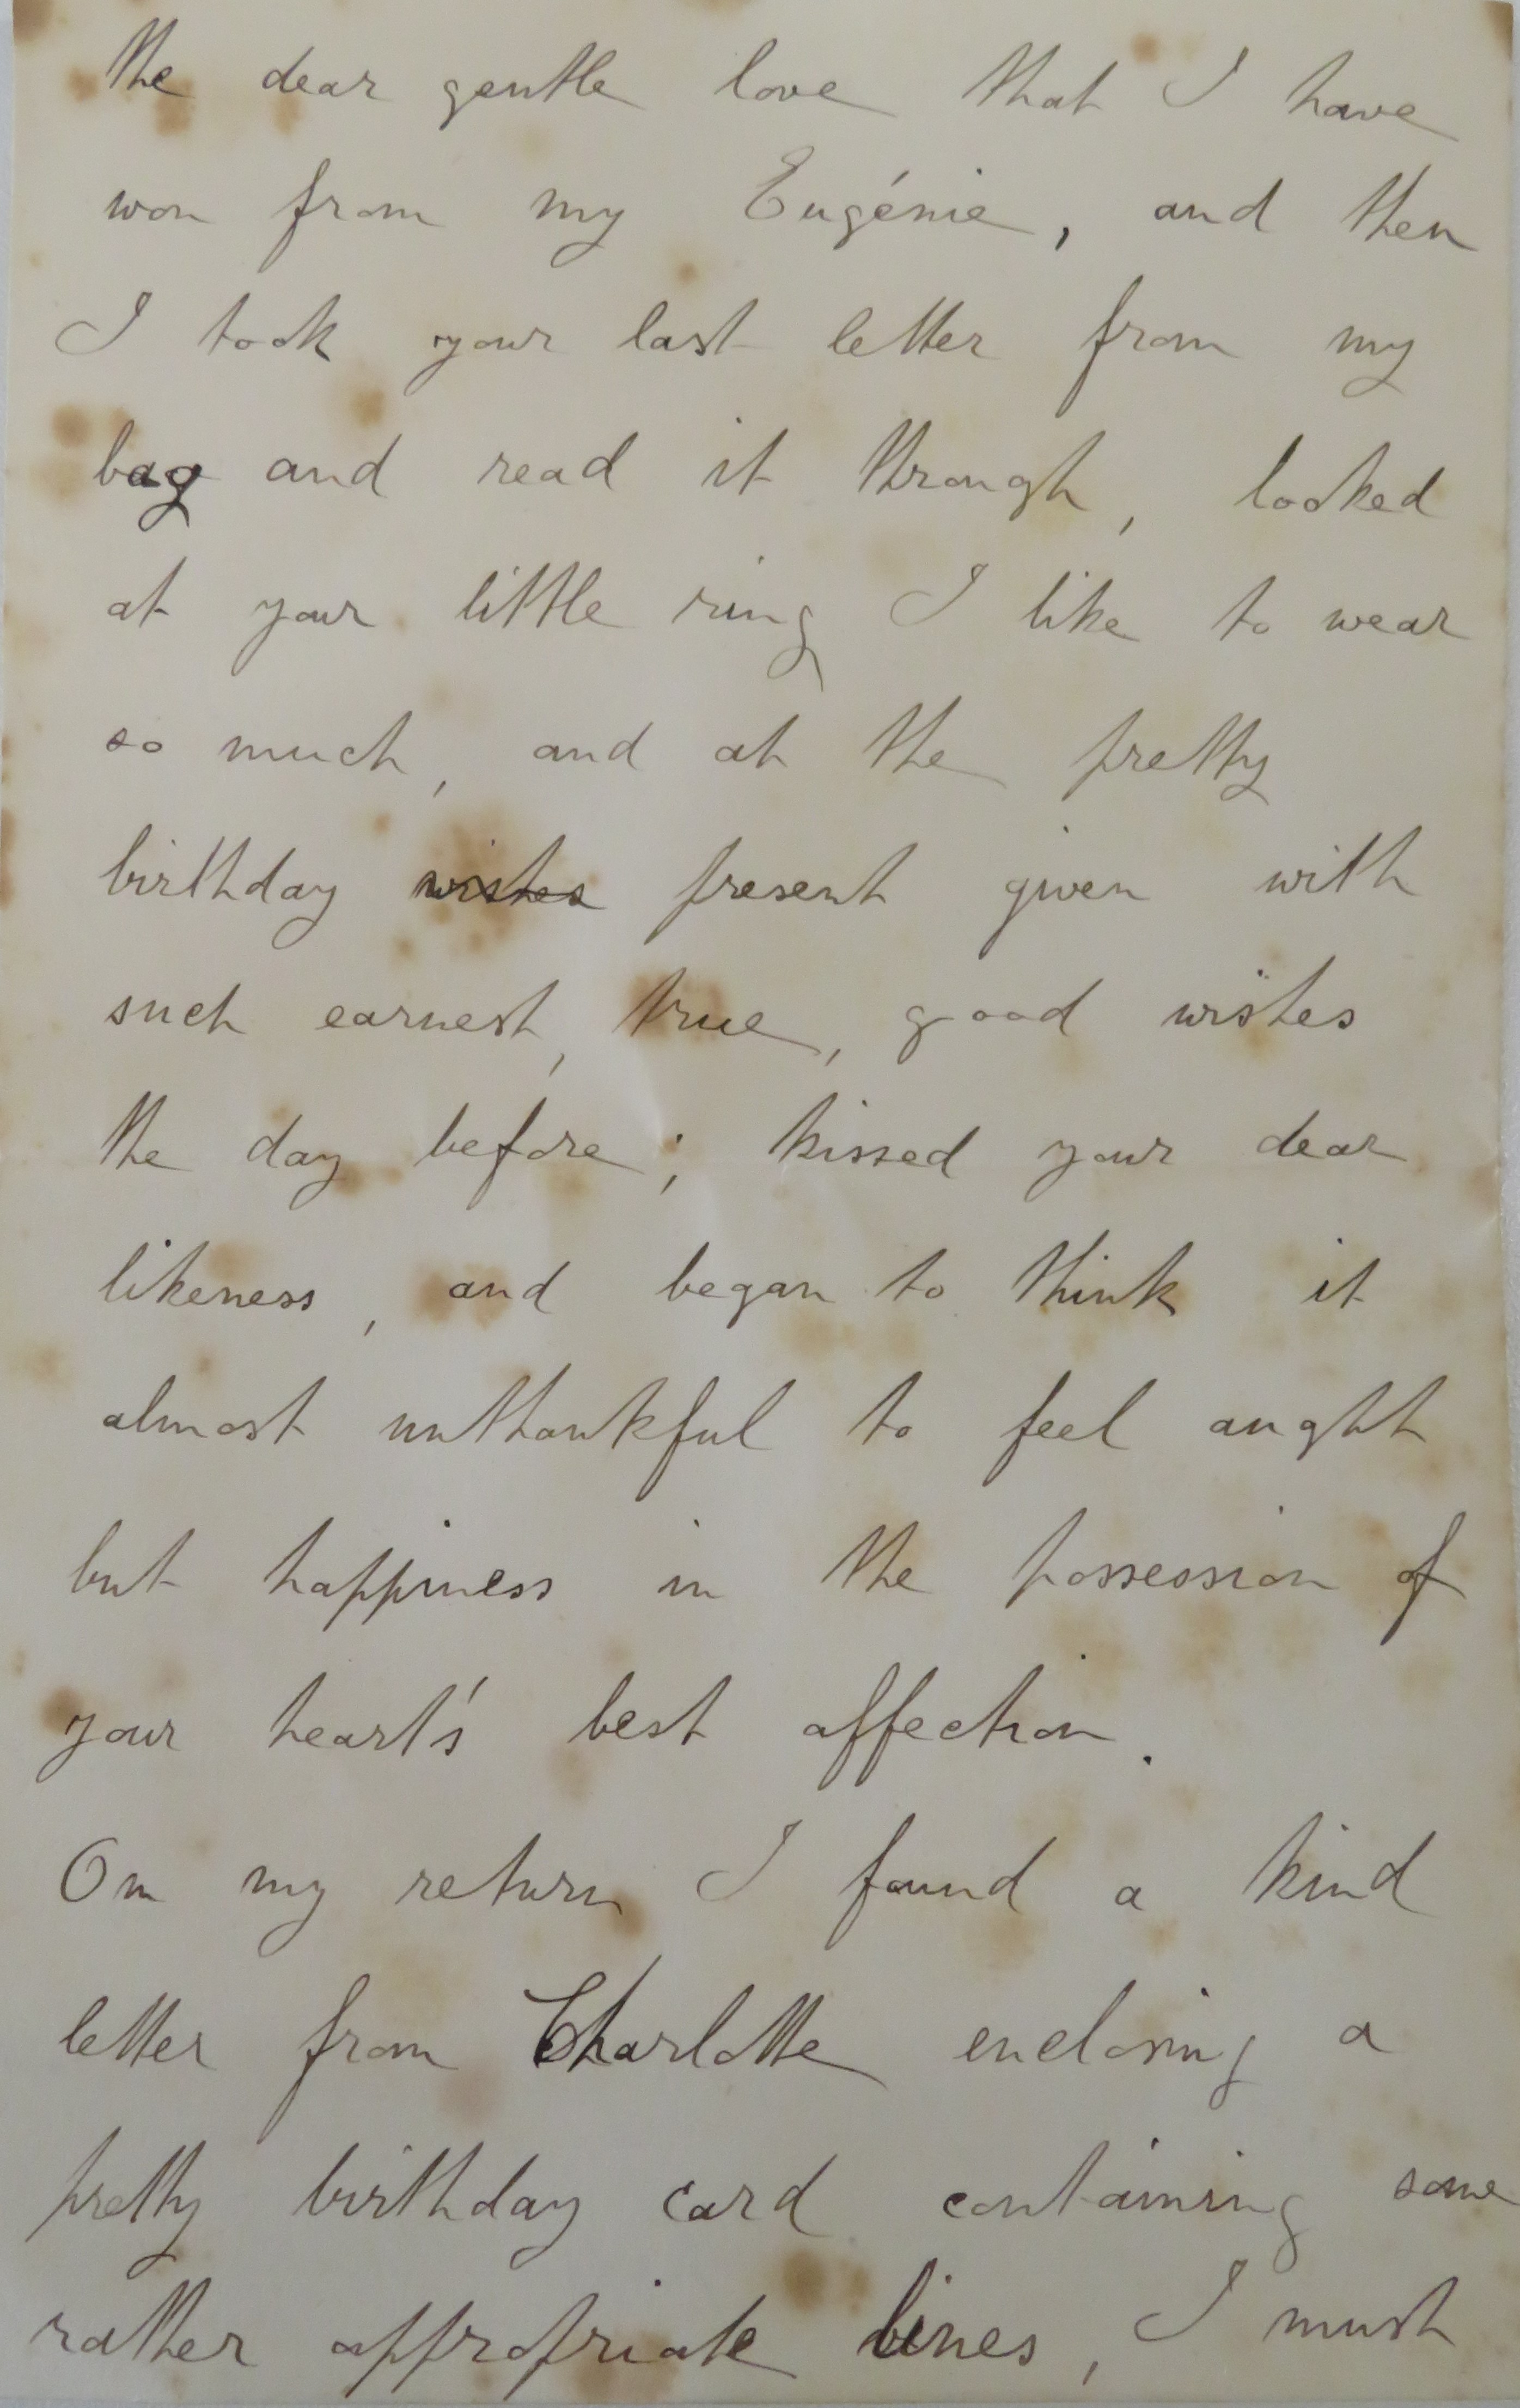 the dear gentle love that I have
won from my Eugénie, and then
I took your last letter from my
bag and read it through, looked
at your little ring I like to wear
so much, and at the pretty
birthday wishes present given with
such earnest, true, good wishes
the day before; kissed your dear
likeness, and began to think it
almost unthankful to feel aught
but happiness in the possession of
your heart's best affection.
On my return I found a kind
letter from Charlotte enclosing a
pretty birthday card containing some
rather appropriate lines, I must